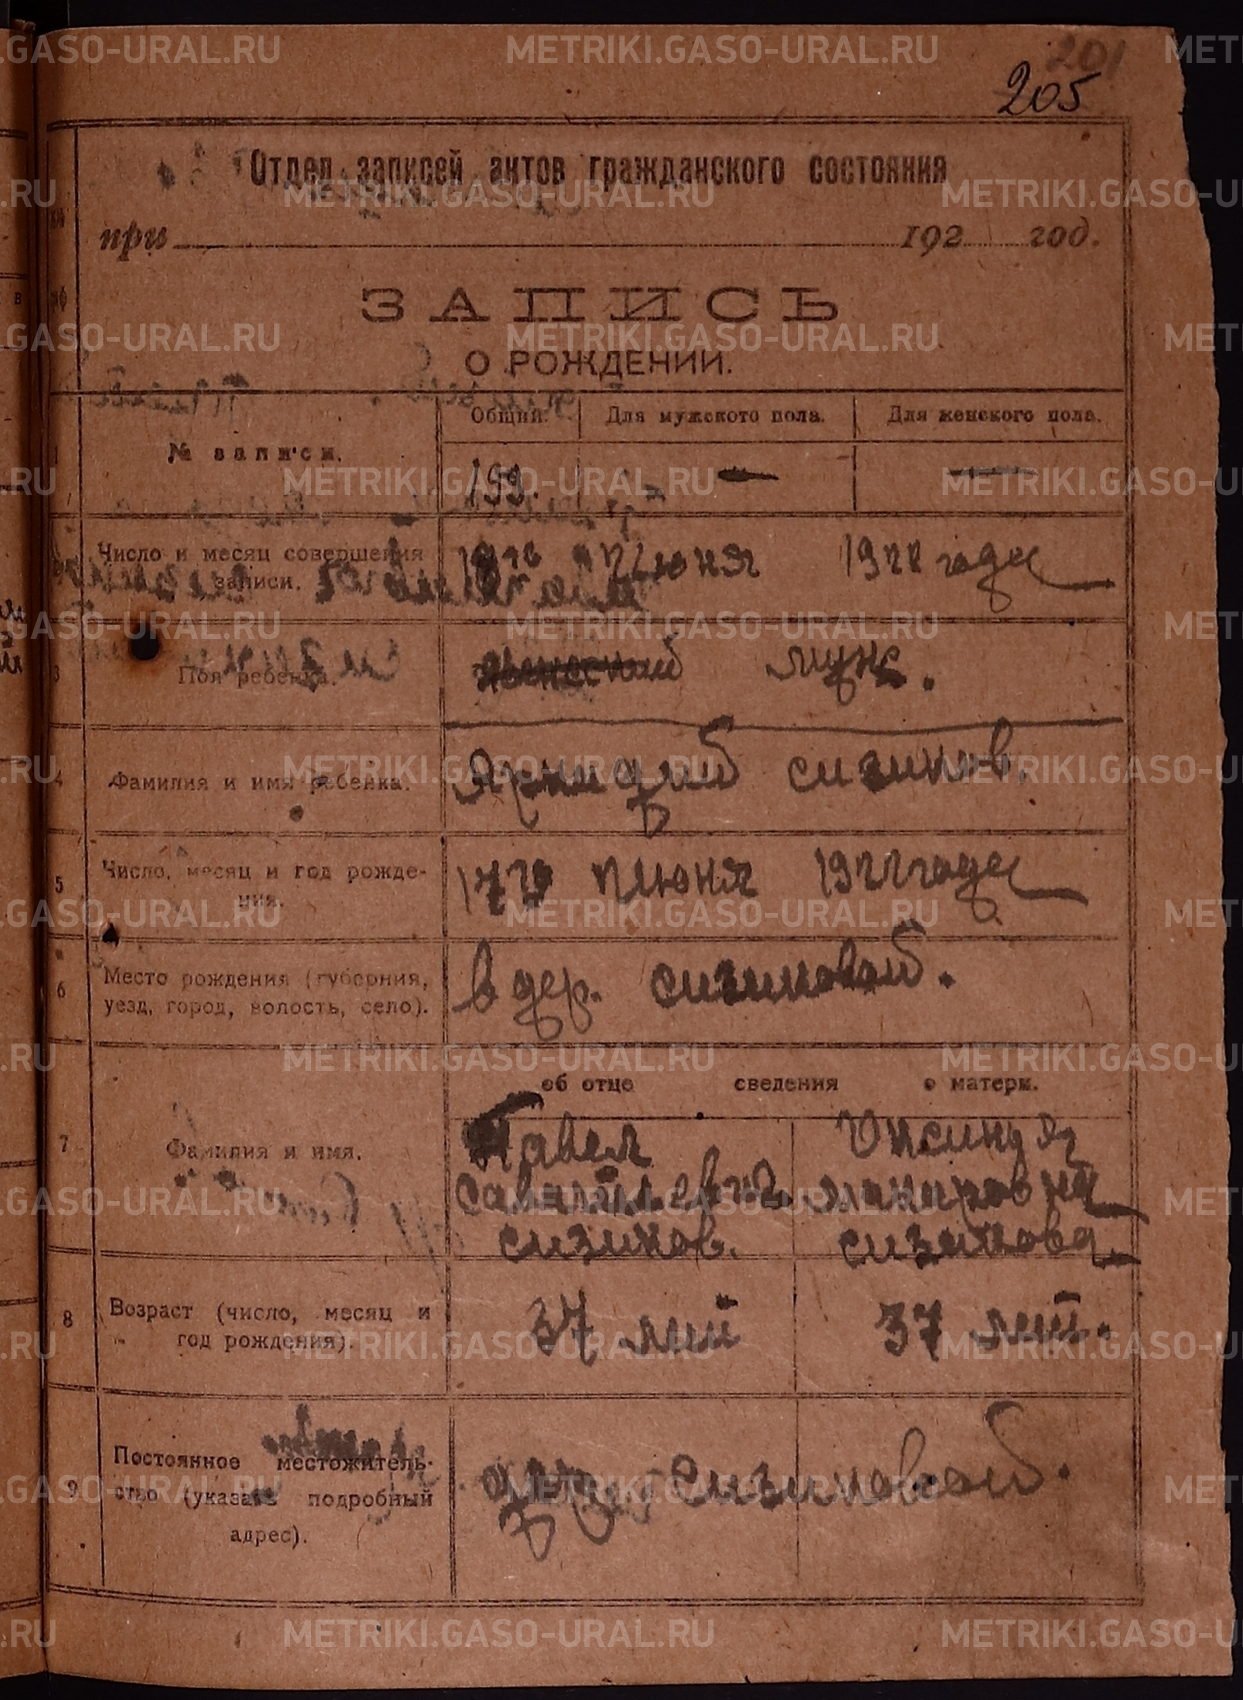 201
205
Отдел записей актов гражданского состояния
при 192 год.
ЗАПИСЬ
О РОЖДЕНИИ.
№ записи.
Общий. Для мужского пола. Для женского пола.
199. — —
Число и месяц совершения записи.
июня 1922 года
3 Пол ребенка.
муж.
4 Фамилия и имя ребенка.
сизиков.
5 Число, месяц и год рожде-
ния.
17го июня 1922 года
6 Место рождения (губерния,
уезд, город, волость, село).
в дер. сизиковой.
об отце сведения о матери.
7 Фамилия и имя.
Павел
савателевич
сизиков.
Оксинья
макаровна
сизикова.
8 Возраст (число, месяц и
год рождения).
37 лет 37 лет.
9 Постоянное местожитель-
ство (указать подробный
адрес).
дер. сизиковой.
METRIKI.GASO-URAL.RU